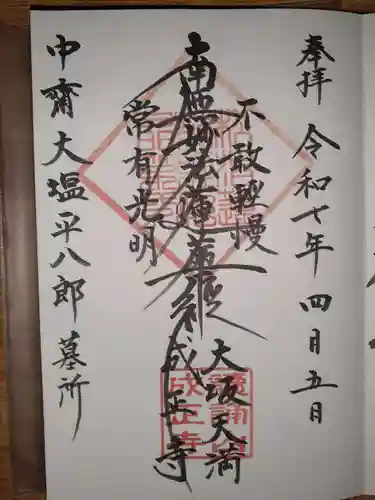 奉拝 令和七年 四月五日
不敢軽慢
南無妙法蓮華経
常有光明
大坂天満
成正寺
中齋大塩平八郎墓所
成正寺